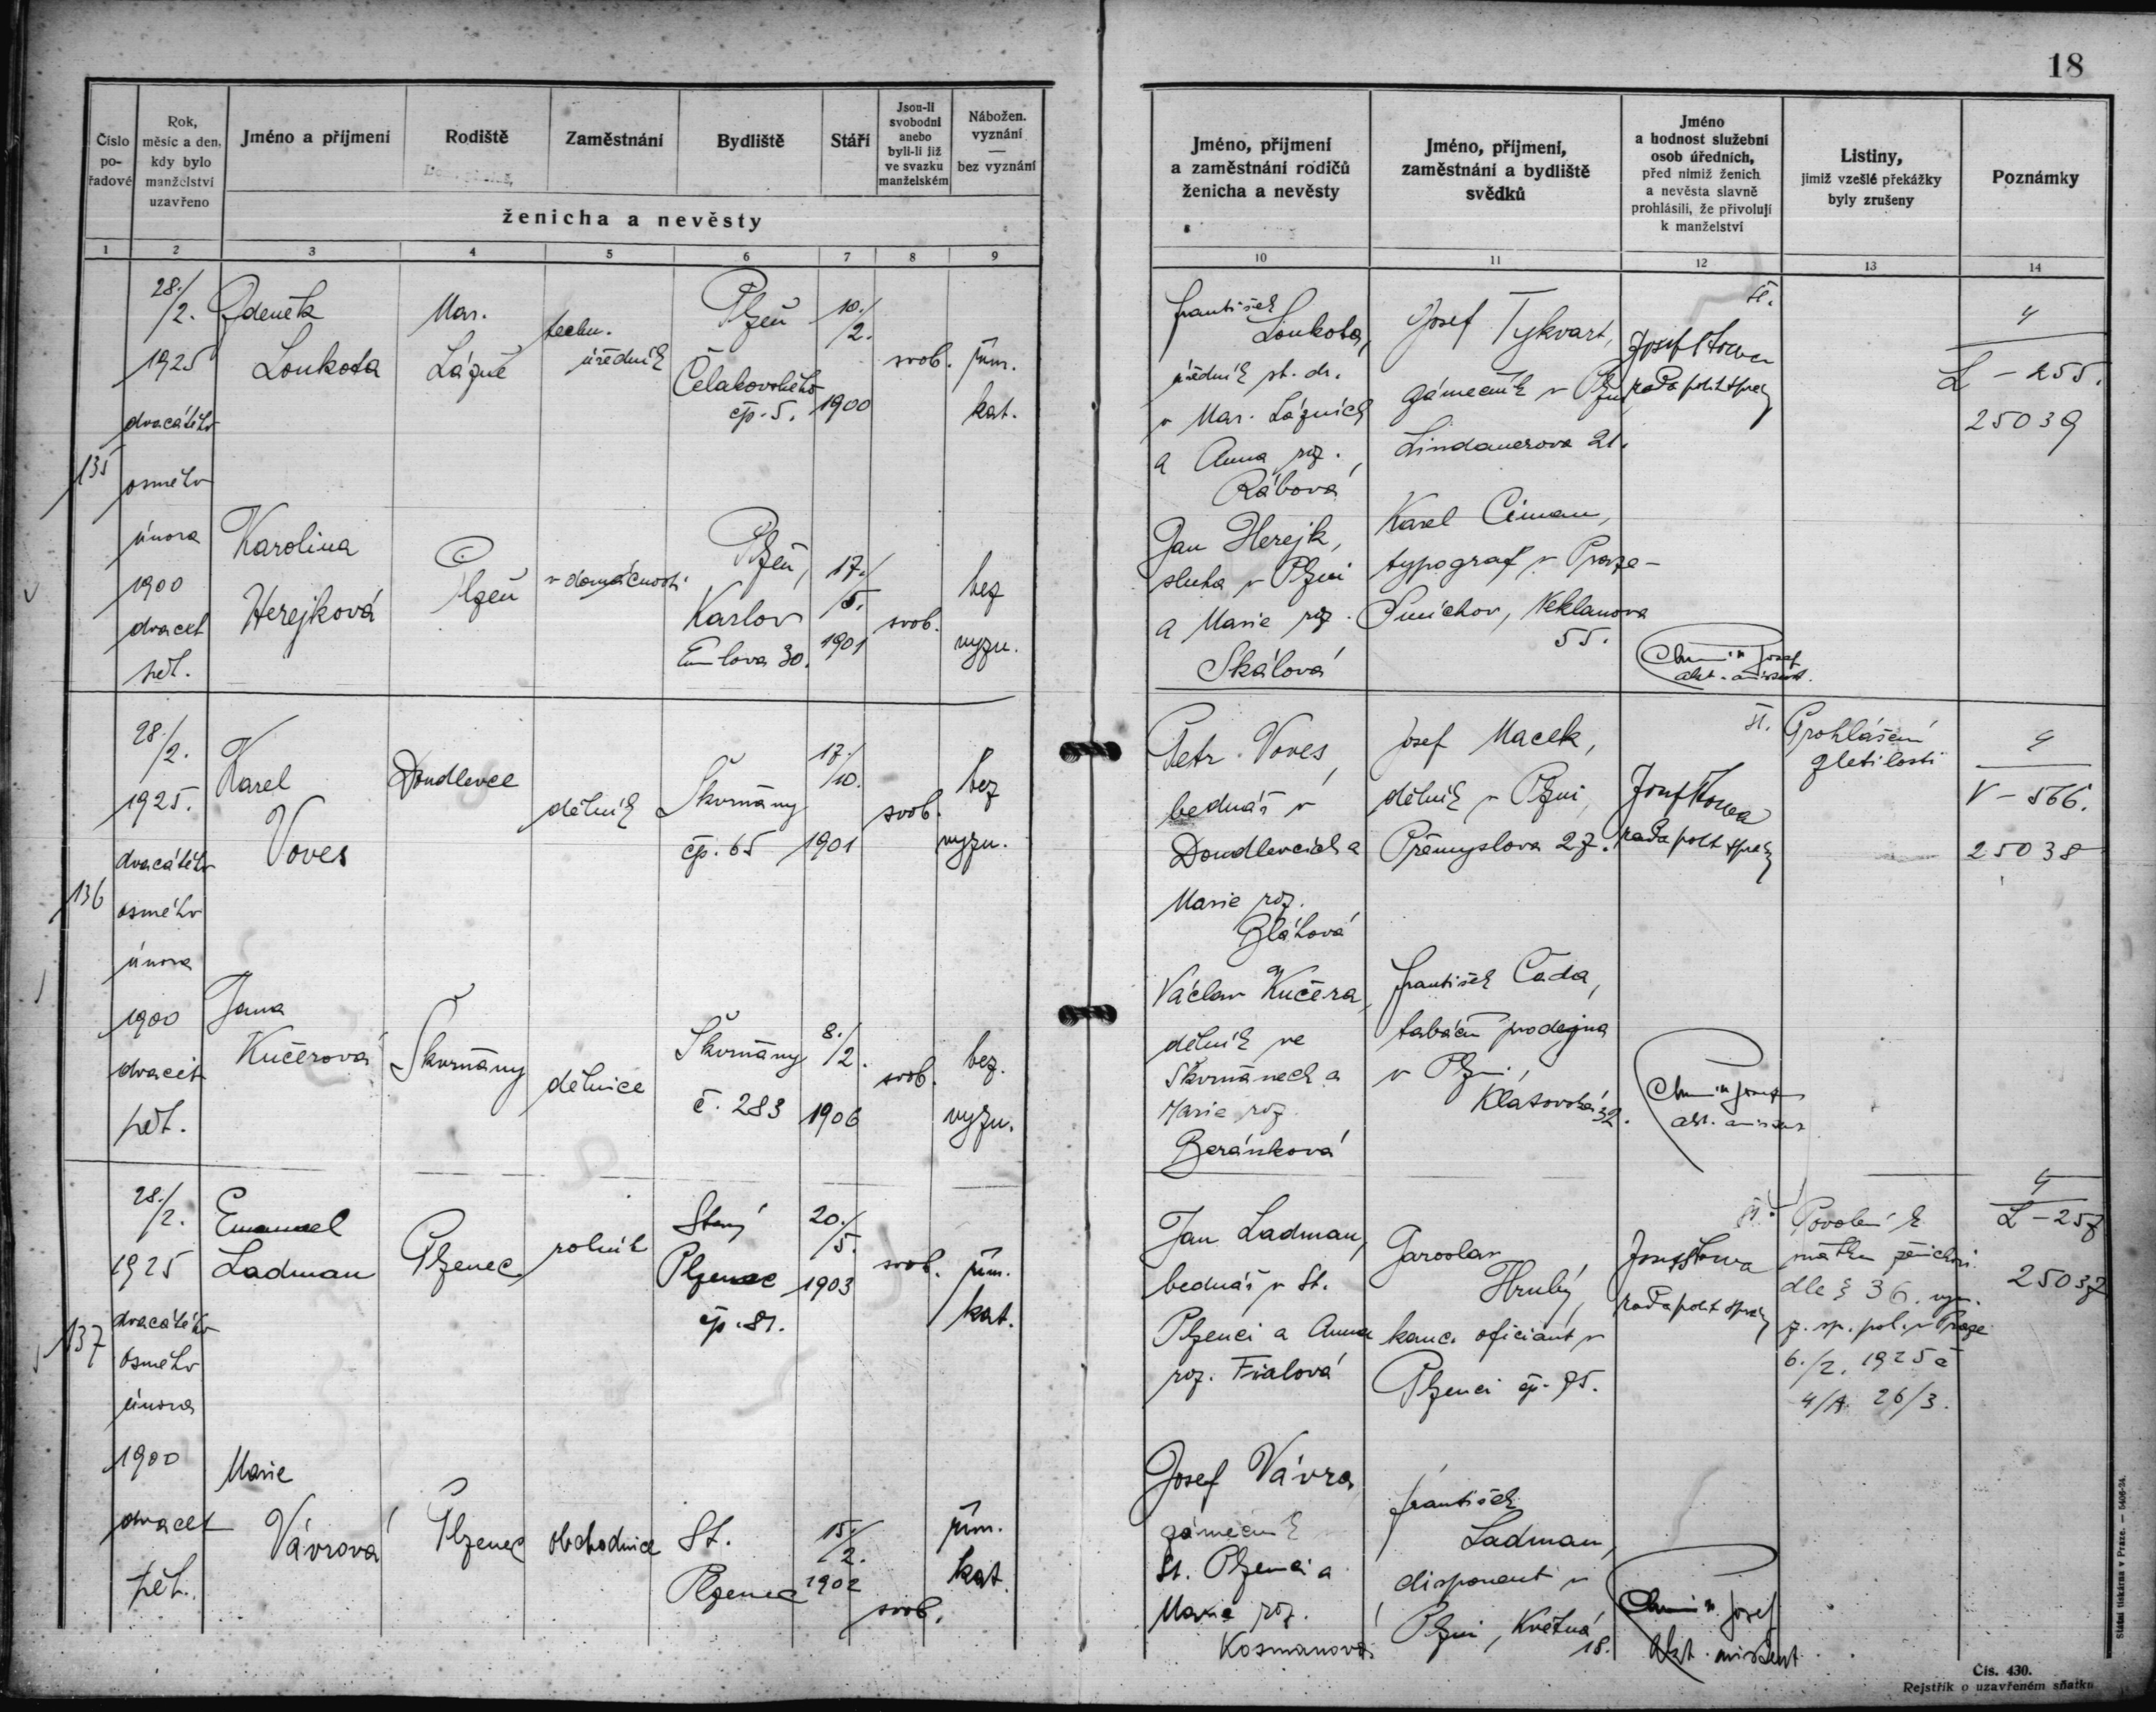 18
Číslo pořadové
Rok, měsíc a den, kdy bylo manželství uzavřeno
Jméno a příjmení
Rodiště
Zaměstnání
Bydliště
Stáří
Jsou-li svobodni anebo byli-li již ve svazku manželském
Nábožen. vyznání — bez vyznání
ženicha a nevěsty
Jméno, příjmení a zaměstnání rodičů ženicha a nevěsty
Jméno, příjmení, zaměstnání a bydliště svědků
Jméno a hodnost služební osob úředních, před nimiž ženich a nevěsta slavně prohlásili, že přivolují k manželství
Listiny, jimiž vzešlé překážky byly zrušeny
Poznámky
1 2 3 4 5 6 7 8 9 10 11 12 13 14
135
28./2.
1925
dvacátého
osmého
února
1900
dvacet
pět.
Zdeněk
Loukota
Mar.
Lázně
techn.
úředník
Plzeň
Čelakovského
čp. 5.
10./2.
1900
svob.
řím.
kat.
František
Loukota,
úředník st. dr.
v Mar. Lázních
a Anna roz.
Rábová
Josef Tykvart,
zámečník v Plzni,
Lindauerova 21.
rada polit správy
4
L - 255.
25039
Karolina
Herejková
Plzeň
v domácnosti
Plzeň,
Karlov
Emilova 30.
17./5.
1901
svob.
bez
vyzn.
Jan Herejk,
sluha v Plzni
a Marie roz.
Skálová
Karel Ciman,
typograf v Praze-
Smíchov, Neklanova
55.
Josef
akt. asistent.
136
28./2.
1925.
dvacátého
osmého
února
1900
dvacet
pět.
Karel
Voves
Doudlevce
dělník
Škvrňany
čp. 65
17./10.
1901
svob.
bez
vyzn.
Petr Voves,
bednář v
Doudlevcích a
Marie roz.
Bláhová
Josef Macek,
dělník v Plzni,
Přemyslova 27.
rada polit správy
Prohlášení
zletilosti
4
V - 566.
25038
Jana
Kučerová
Škvrňany
dělnice
Škvrňany
č. 283
8./2.
1906
svob.
bez.
vyzn.
Václav Kučera,
dělník ve
Škvrňanech a
Marie roz.
Beránková
František Čada,
tabáční prodejna
v Plzni,
Klatovská 32.
akt. asistent
137
28./2.
1925
dvacátého
osmého
února
1900
dvacet
pět.
Emanuel
Ladman
Plzenec
rolník
Starý
Plzenec
čp. 81.
20./5.
1903
svob.
řím.
kat.
Jan Ladman,
bednář v St.
Plzenci a Anna
roz. Fialová
Jaroslav
Hrubý,
kanc. oficiant v
Plzenci čp. 75.
rada polit správy
Povolení k
sňatku
dle § 36.
z. sp. pol. v Praze
6./2. 1925 č
4/A 26/3.
4
L - 257
25037
Marie
Vávrová
Plzenec
obchodnice
St.
Plzenec
15./2.
1902
svob.
řím.
kat.
Josef Vávra
zámečník
St. Plzenci a
Marie roz.
Kosmanová
František
Ladman,
disponent v
Plzni, Květná
18.
Josef
akt. asistent
Státní tiskárna v Praze. — 5406-24.
Čís. 430.
Rejstřík o uzavřeném sňatku